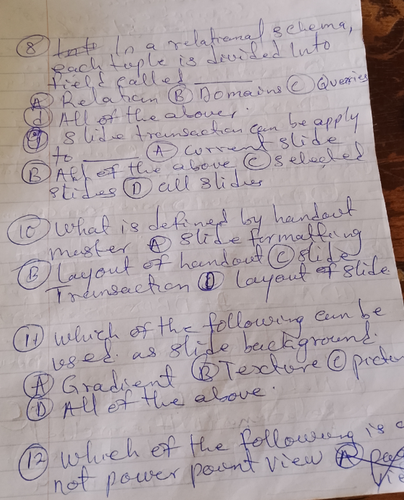 8 In a relational schema,
each tuple is divided into
field called ______
A Relation B Domains C Queries
d All of the above.
9 Slide transaction can be apply
to ______ A current slide
B All of the above C selected
slides D all slides
10 What is defined by handout
master A slide formatting
B Layout of handout C slide
Transaction D layout of slide
11 Which of the following can be
used as slide background.
A Gradient B Texture C pictur
D All of the above.
12 Which of the following is
not power point view A